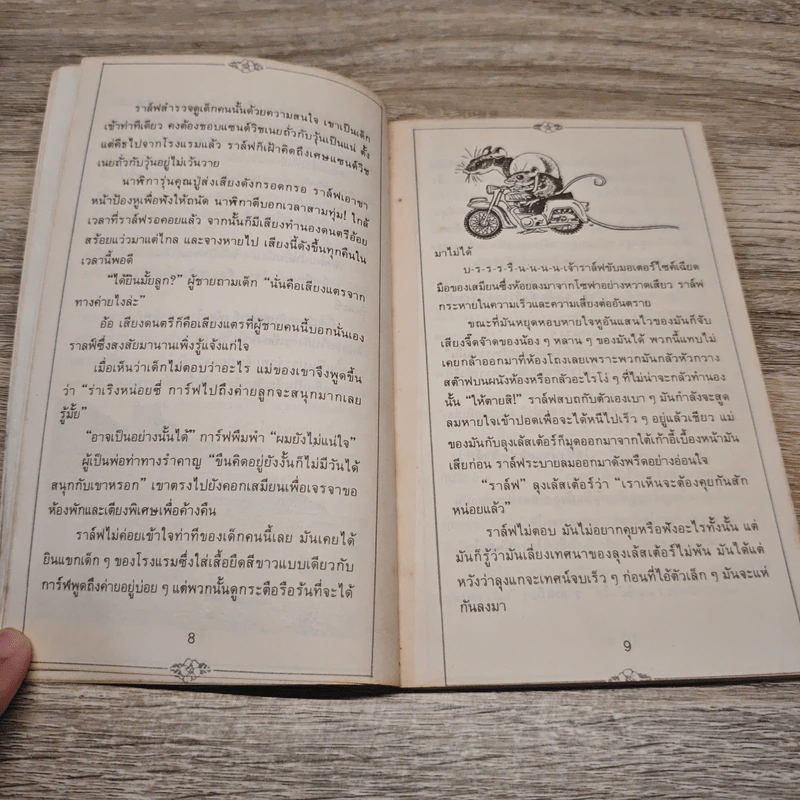 ราล์ฟสำรวจดูเด็กคนนั้นด้วยความสนใจ เขาเป็นเด็ก
เข้าท่าทีเดียว คงต้องชอบแซนด์วิชเนยถั่วกับวุ้นเป็นแน่ ตั้ง
แต่คีธไปจากโรงแรมแล้ว ราล์ฟก็เฝ้าคิดถึงเศษแซนด์วิช
เนยถั่วกับวุ้นอยู่ไม่เว้นวาย
นาฬิการุ่นคุณปู่ส่งเสียงดังกรอดกรอ ราล์ฟเอาขา
หน้าป้องหูเพื่อฟังให้ถนัด นาฬิกาตีบอกเวลาสามทุ่ม! ใกล้
เวลาที่ราล์ฟรอคอยแล้ว จากนั้นก็มีเสียงทำนองดนตรีอ้อย
สร้อยแว่วมาแต่ไกล และจางหายไป เสียงนี้ดังขึ้นทุกคืนใน
เวลานี้พอดี
“ได้ยินมั้ยลูก?” ผู้ชายถามเด็ก “นั่นคือเสียงแตรจาก
ทางค่ายไงล่ะ”
อ้อ เสียงดนตรีก็คือเสียงแตรที่ผู้ชายคนนี้บอกนั่นเอง
ราล์ฟซึ่งสงสัยมานานเพิ่งรู้แจ้งแก่ใจ
เมื่อเห็นว่าเด็กไม่ตอบว่าอะไร แม่ของเขาจึงพูดขึ้น
ว่า “ร่าเริงหน่อยซี่ การ์ฟไปถึงค่ายลูกจะสนุกมากเลย
รู้มั้ย”
“อาจเป็นอย่างนั้นได้” การ์ฟพึมพำ “ผมยังไม่แน่ใจ”
ผู้เป็นพ่อท่าทางรำคาญ “ขืนคิดอยู่ยังงั้นก็ไม่มีวันได้
สนุกกับเขาหรอก” เขาตรงไปยังคอกเสมียนเพื่อเจรจาขอ
ห้องพักและเตียงพิเศษเพื่อค้างคืน
ราล์ฟไม่ค่อยเข้าใจท่าทีของเด็กคนนี้เลย มันเคยได้
ยินแขกเด็ก ๆ ของโรงแรมซึ่งใส่เสื้อยืดสีขาวแบบเดียวกับ
การ์ฟพูดถึงค่ายอยู่บ่อย ๆ แต่พวกนั้นดูกระตือรือร้นที่จะได้
8
มาไม่ได้
บ-ร-ร-ร-รื้น-น-น-น-น-เจ้าราล์ฟขับมอเตอร์ไซค์เฉียด
มือของเสมียนซึ่งห้อยลงมาจากโซฟาอย่างหวาดเสียว ราล์ฟ
กระหายในความเร็วและความเสี่ยงต่ออันตราย
ขณะที่มันหยุดหอบหายใจหูอันแสนไวของมันก็จับ
เสียงจี๊ดจ๊าดของน้อง ๆ หลาน ๆ ของมันได้ พวกนี้แทบไม่
เคยกล้าออกมาที่ห้องโถงเลยเพราะพวกมันกลัวหัวกวาง
สต๊าฟบนผนังห้องหรือกลัวอะไรโง่ ๆ ที่ไม่น่าจะกลัวทำนอง
นั้น “ให้ตายสิ!” ราล์ฟสบถกับตัวเองเบา ๆ มันกำลังจะสูด
ลมหายใจเข้าปอดเพื่อจะได้หนีไปเร็ว ๆ อยู่แล้วเชียว แม่
ของมันกับลุงเล้สเต้อร์ก็มุดออกมาจากใต้เก้าอี้เบื้องหน้ามัน
เสียก่อน ราล์ฟระบายลมออกมาดังพรืดอย่างอ่อนใจ
“ราล์ฟ” ลุงเล้สเต้อร์ว่า “เราเห็นจะต้องคุยกันสัก
หน่อยแล้ว”
ราล์ฟไม่ตอบ มันไม่อยากคุยหรือฟังอะไรทั้งนั้น แต่
มันก็รู้ว่ามันเลี่ยงเทศนาของลุงเล้สเต้อร์ไม่พ้น มันได้แต่
หวังว่าลุงแกจะเทศน์จบเร็ว ๆ ก่อนที่ไอ้ตัวเล็ก ๆ มันจะแห่
กันลงมา
9